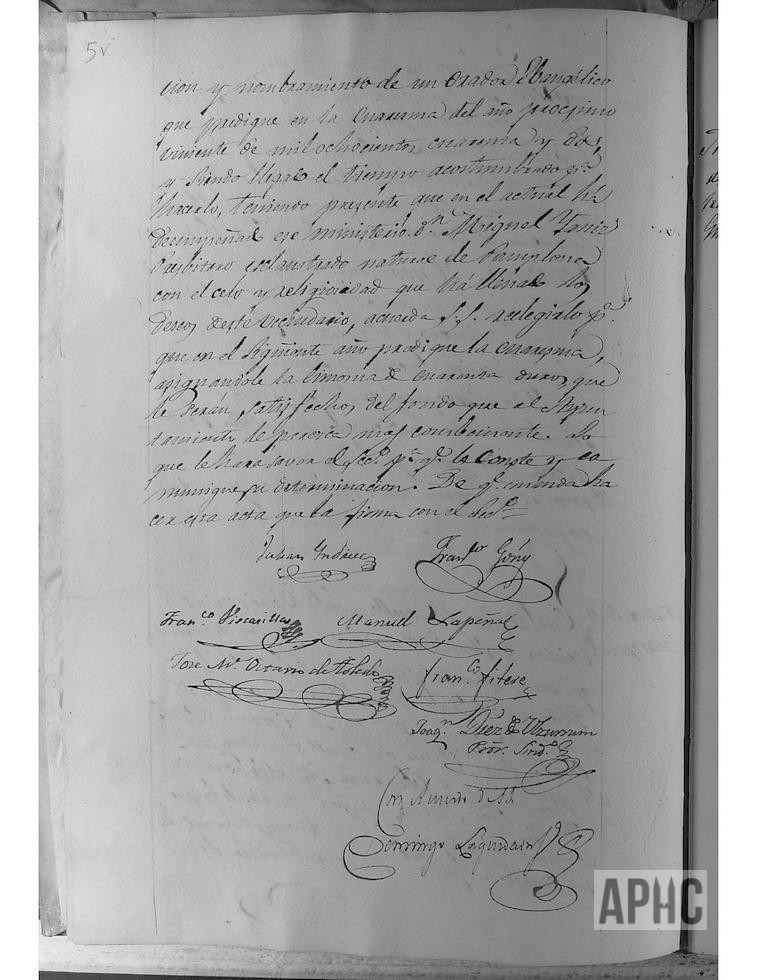 5v
cion y nombramiento de un Orador Ebangélico
que predique en la Cuaresma del año procsimo
viniente de mil ochocientos cuarenta y dos,
y siendo llegado el tiempo acostumbrado pª
hacerlo, teniendo presente que en el actual há
desempeñado ese ministerio Dn Miguel
Presbitero esclaustrado natural de Pamplona
con el celo y religiosidad que há llenado los
deseos deeste vecindario, acuerda S.S. relegirlo pª
que en el siguiente año predique la cuaresma,
asignandole la limosna de cuarenta duros, que
le serán satisfechos del fondo que al Ayun
tamiento le paresca mas combeniente. Lo
que le hara saver el Secº pª qe le conste y co
munique su determinacion. De qe mando ha
cer esta acta que la firma con el Secº
Julian
Franco Goñy
Franco Viscarillas Manuel Lapeña
Jose Mª Octavio de Toledo
Franco Fitere
Joaqn Diez de Ulzurrum
Pror Sindº
Con Acuerdo de SS
Domingo
APHC